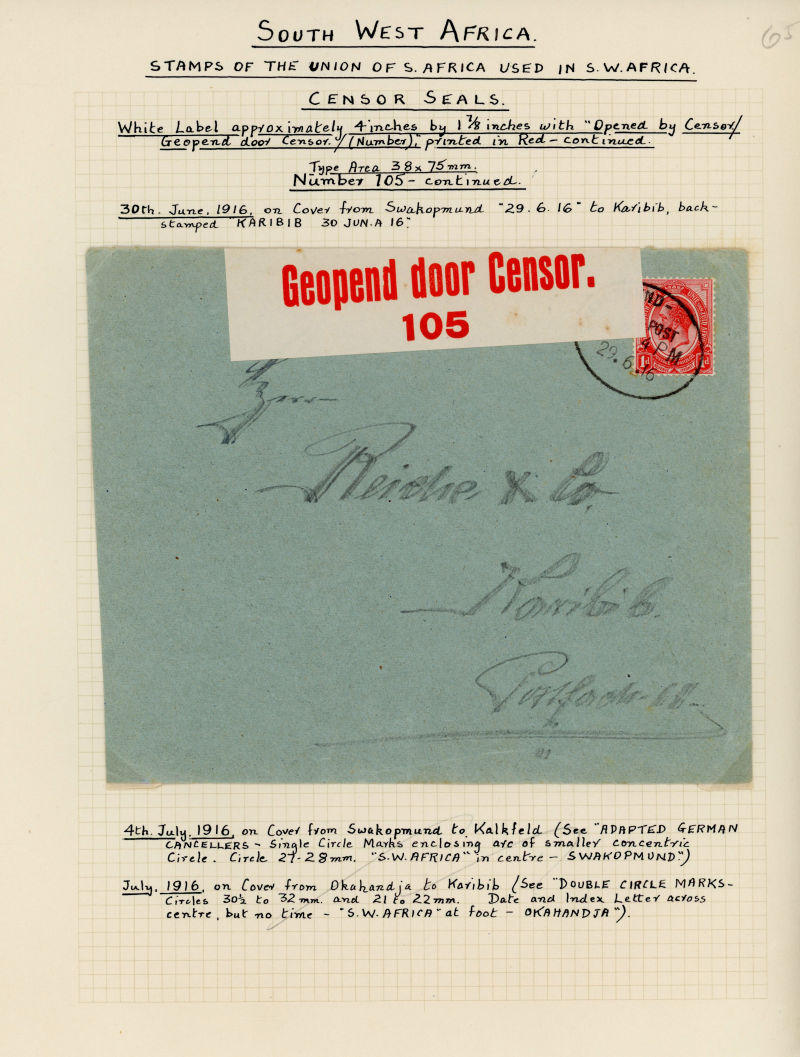 65
SOUTH WEST AFRICA.
STAMPS OF THE UNION OF S. AFRICA USED IN S.W. AFRICA.
CENSOR SEALS.
White Label approximately 4 inches by 1 7/8 inches with "Opened by Censor/
Geopend door Censor./(Number)," printed in Red – continued.
Type Area 38 x 75 mm.
Number 105 – continued.
30th. June, 1916, on Cover from Swakopmund "29. 6. 16" to Karibib, back-
stamped "KARIBIB 30 JUN.A 16."
Geopend door Censor.
105
ND -
POST
4 PM
29. 6. 16
1d
1d
Herr
Reiche & Co.
Karibib.
Postfach
4th. July, 1916, on Cover from Swakopmund to Kalkfeld (See "ADAPTED GERMAN
CANCELLERS – Single Circle Marks enclosing arc of smaller concentric
Circle. Circle 27-28mm. "S.W. AFRICA" in centre – SWAKOPMUND")
July, 1916, on Cover from Okahandja to Karibib (See "DOUBLE CIRCLE MARKS –
Circles 30½ to 32 mm. and 21 to 22 mm. Date and Index Letter across
centre, but no time – "S.W. AFRICA" at foot – OKAHANDJA").